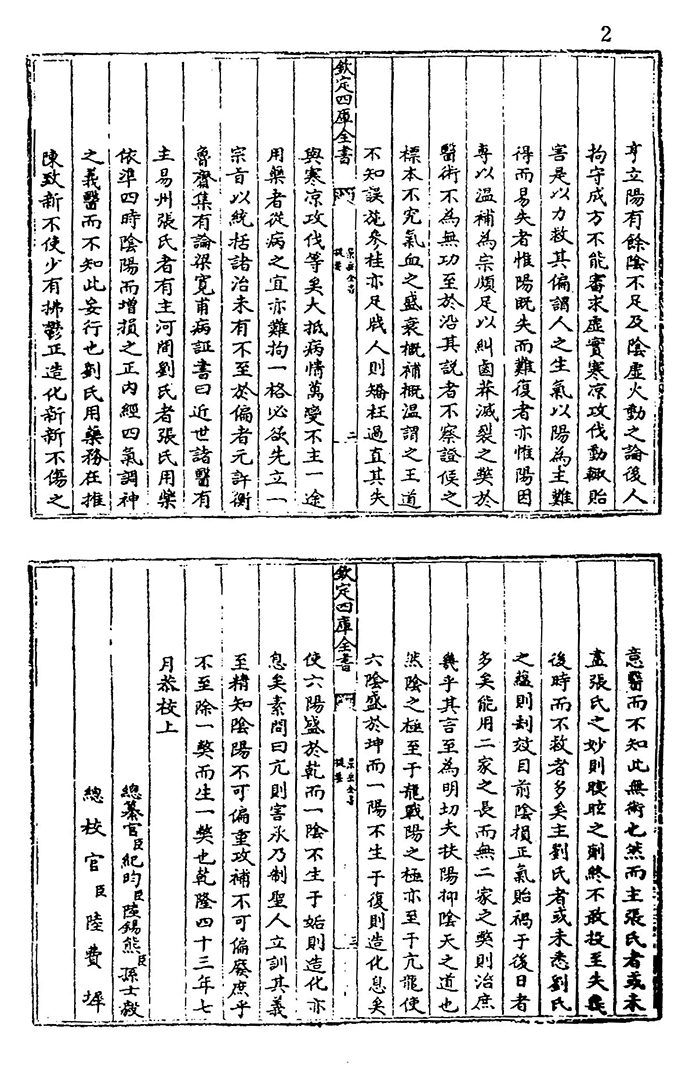 2
亨立陽有餘陰不足及陰虛火動之論後人
拘守成方不能審求虛實寒凉攻伐動輒貽
害是以力救其偏謂人之生氣以陽為主難
得而易失者惟陽既失而難復者亦惟陽因
專以温補為宗頗足以糾鹵莽滅裂之獘於
醫術不為無功至於沿其說者不察證候之
標本不究氣血之盛衰概補概温謂之王道
不知誤施參桂亦足戕人則矯枉過直其失
欽定四庫全書
景岳全書
提要
二
與寒凉攻伐等矣大抵病情萬變不主一途
用藥者從病之宜亦難拘一格必欲先立一
宗旨以統括諸治未有不至於偏者元許衡
魯齋集有論梁寛甫病証書曰近世諸醫有
主易州張氏者有主河間劉氏者張氏用藥
依準四時陰陽而增損之正内經四氣調神
之義醫而不知此妄行也劉氏用藥務在推
陳致新不使少有拂鬱正造化新新不傷之
意醫而不知此無術也然而主張氏者或未
盡張氏之妙則瞑眩之劑終不敢投至失幾
後時而不救者多矣主劉氏者或未悉劉氏
之蘊則劫效目前陰損正氣貽禍于後日者
多矣能用二家之長而無二家之獘則治庶
幾乎其言至為明切夫扶陽抑陰天之道也
然陰之極至于龍戰陽之極亦至于亢龍使
六陰盛於坤而一陽不生于復則造化息矣
欽定四庫全書
景岳全書
提要
三
使六陽盛於乾而一陰不生于姤則造化亦
息矣素問曰亢則害承乃制聖人立訓其義
至精知陰陽不可偏重攻補不可偏廢庶乎
不至除一獘而生一獘也乾隆四十三年七
月恭校上
總纂官臣紀昀臣陸錫熊臣孫士毅
總校官臣陸費墀